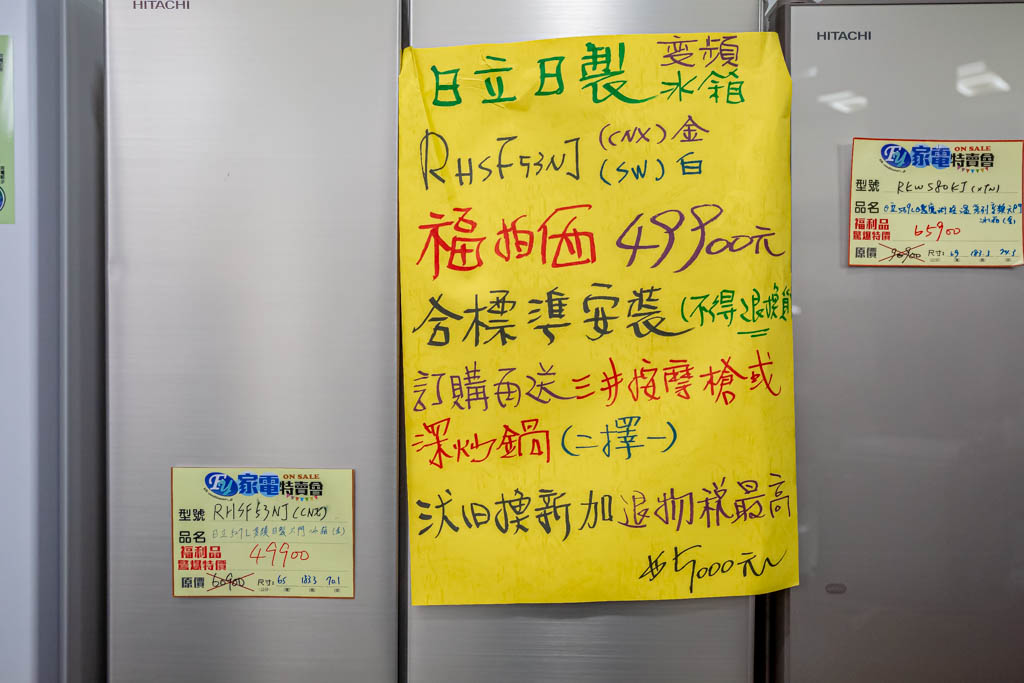 HITACHI
HITACHI
日立日製 変頻
冰箱
RHSF53NJ (CNX)金
(SW)白
福拍価 49900元
含標準安裝(不得退換貨
訂購再送三井按摩槍或
深炒鍋(二擇一)
汰旧換新加退物税最高
$5000元
FU家電特賣會
ON SALE
型號 RHSF53NJ(CNX)
品名 日立507L変頻日製六門冰箱(金)
福利品
驚爆特價 49900
原價 60900 尺寸: 65 183.3 70.1
FU家電特賣會
ON SALE
型號 RKW580KJ(XTW)
品名
冰箱(金)
福利品
驚爆特價 65900
原價 90900 尺寸: